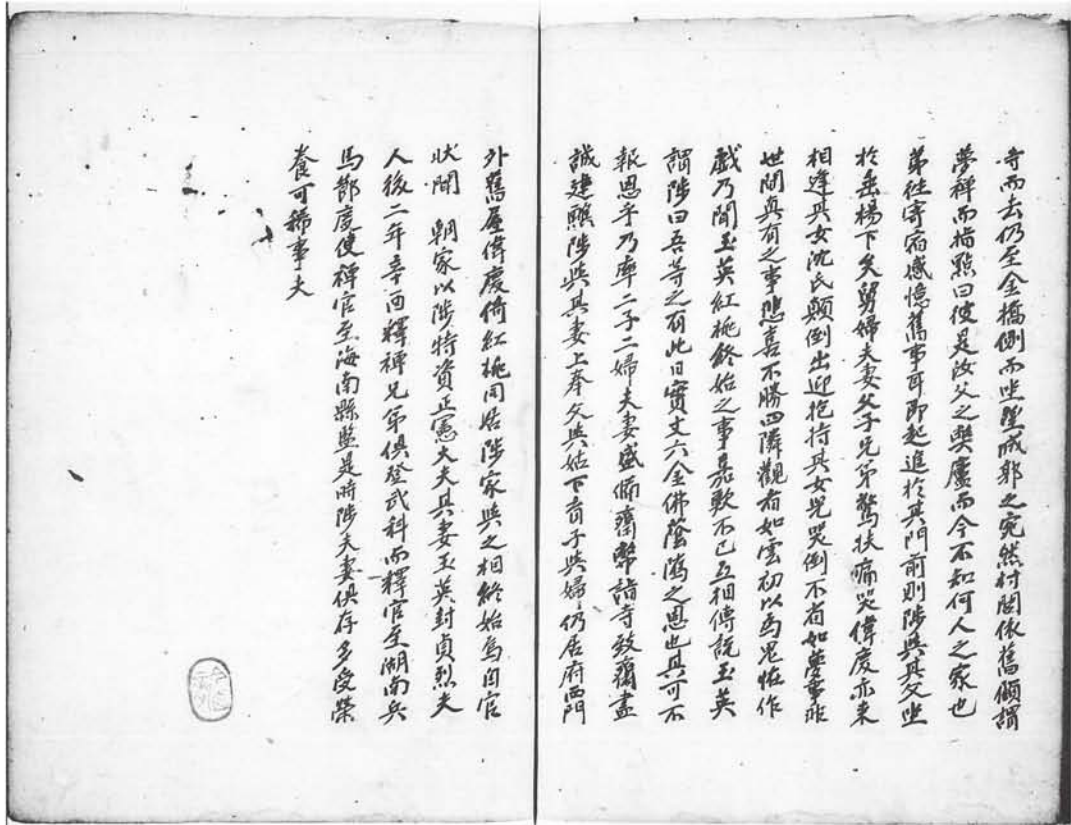 寺而去仍至金橋側而坐望城郭之宛然村閭依舊顧謂
夢釋而指點曰彼是汝父之與廬而今不知何人之家也
苐往寄宿感憶舊事耳即起進於其門前則陟與其父坐
於垂楊下矣舅婦夫妻父子兄苐驚扶痛哭偉慶亦来
相逢其女沈氏顛倒出迎抱持其女児哭倒不省如夢事非
世間真有之事悲喜不勝四隣觀者如雲初以為児恠作
戲乃聞玉英紅桃終始之事嘉歎不已互相傳說玉英
謂陟曰吾等之有此日實丈六金佛蔭隲之恩也其可不
報恩乎乃率二子二婦夫妻盛備齋幣詣寺致齋盡
誠建醮陟與其妻上奉父與姑下育子與婦仍居府西門
外舊屋偉慶倚紅桃同居陟家與之相終始焉自官
状聞 朝家以陟特資正憲大夫其妻玉英封貞烈夫
人後二年辛酉釋禪兄苐俱登武科而釋官至湖南兵
馬節度使禪官至海南縣監是時陟夫妻俱存多受榮
養可稀事夫